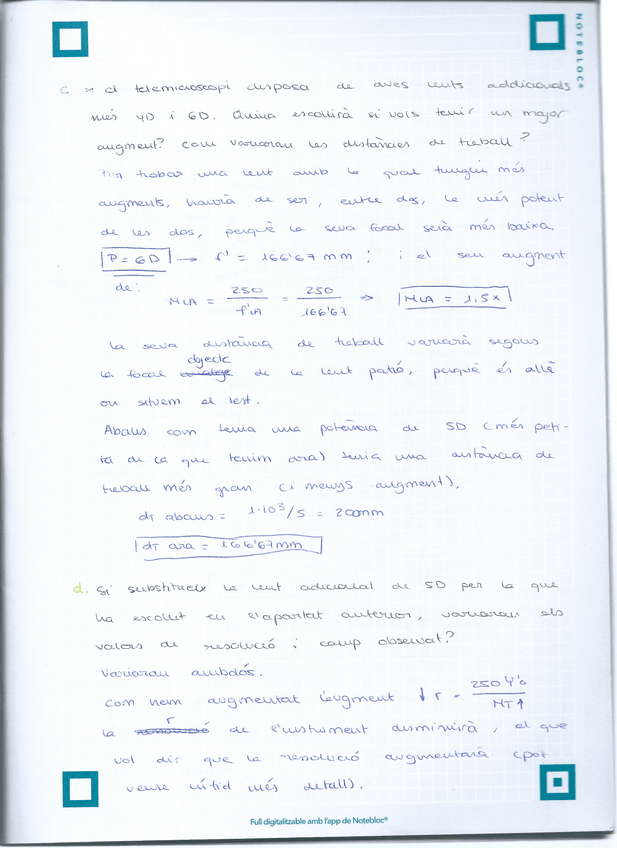 NOTEBLOC®
c * el telemicroscopi disposa de dues lents addicionals
més 4D i 6D. Quina escollirà si vols tenir un major
augment? Com variaran les distàncies de treball?
Per trobar una lent amb la qual tingui més
augments, haurà de ser, entre dos, la més potent
de les dos, perquè la seva focal serà més baixa.
P = 6D → f' = 166'67 mm ; i el seu augment
de: MLA = 250 / f'LA = 250 / 166'67 ⇒ MLA = 1,5x
La seva distància de treball variarà segons
objecte
la focal imatge de la lent patró, perquè és allà
on situem el test.
Abans com tenia una potència de 5D (més peti-
ta de la que tenim ara) tenia una distància de
treball més gran (i menys augment).
dT abans = 1·10³/5 = 200mm
dT ara = 166'67mm
d. Si substitueix la lent adicional de 5D per la que
ha escollit en l'apartat anterior, variaran els
valors de resolució i camp observat?
Variaran ambdós.
Com hem augmentat l'augment ↓ r = 250 γ'o / MT↑
r
la resolució de l'instrument disminuirà, el que
vol dir que la resolució augmentarà (pot
veure nítid més detall).
Full digitalitzable amb l'app de Notebloc®